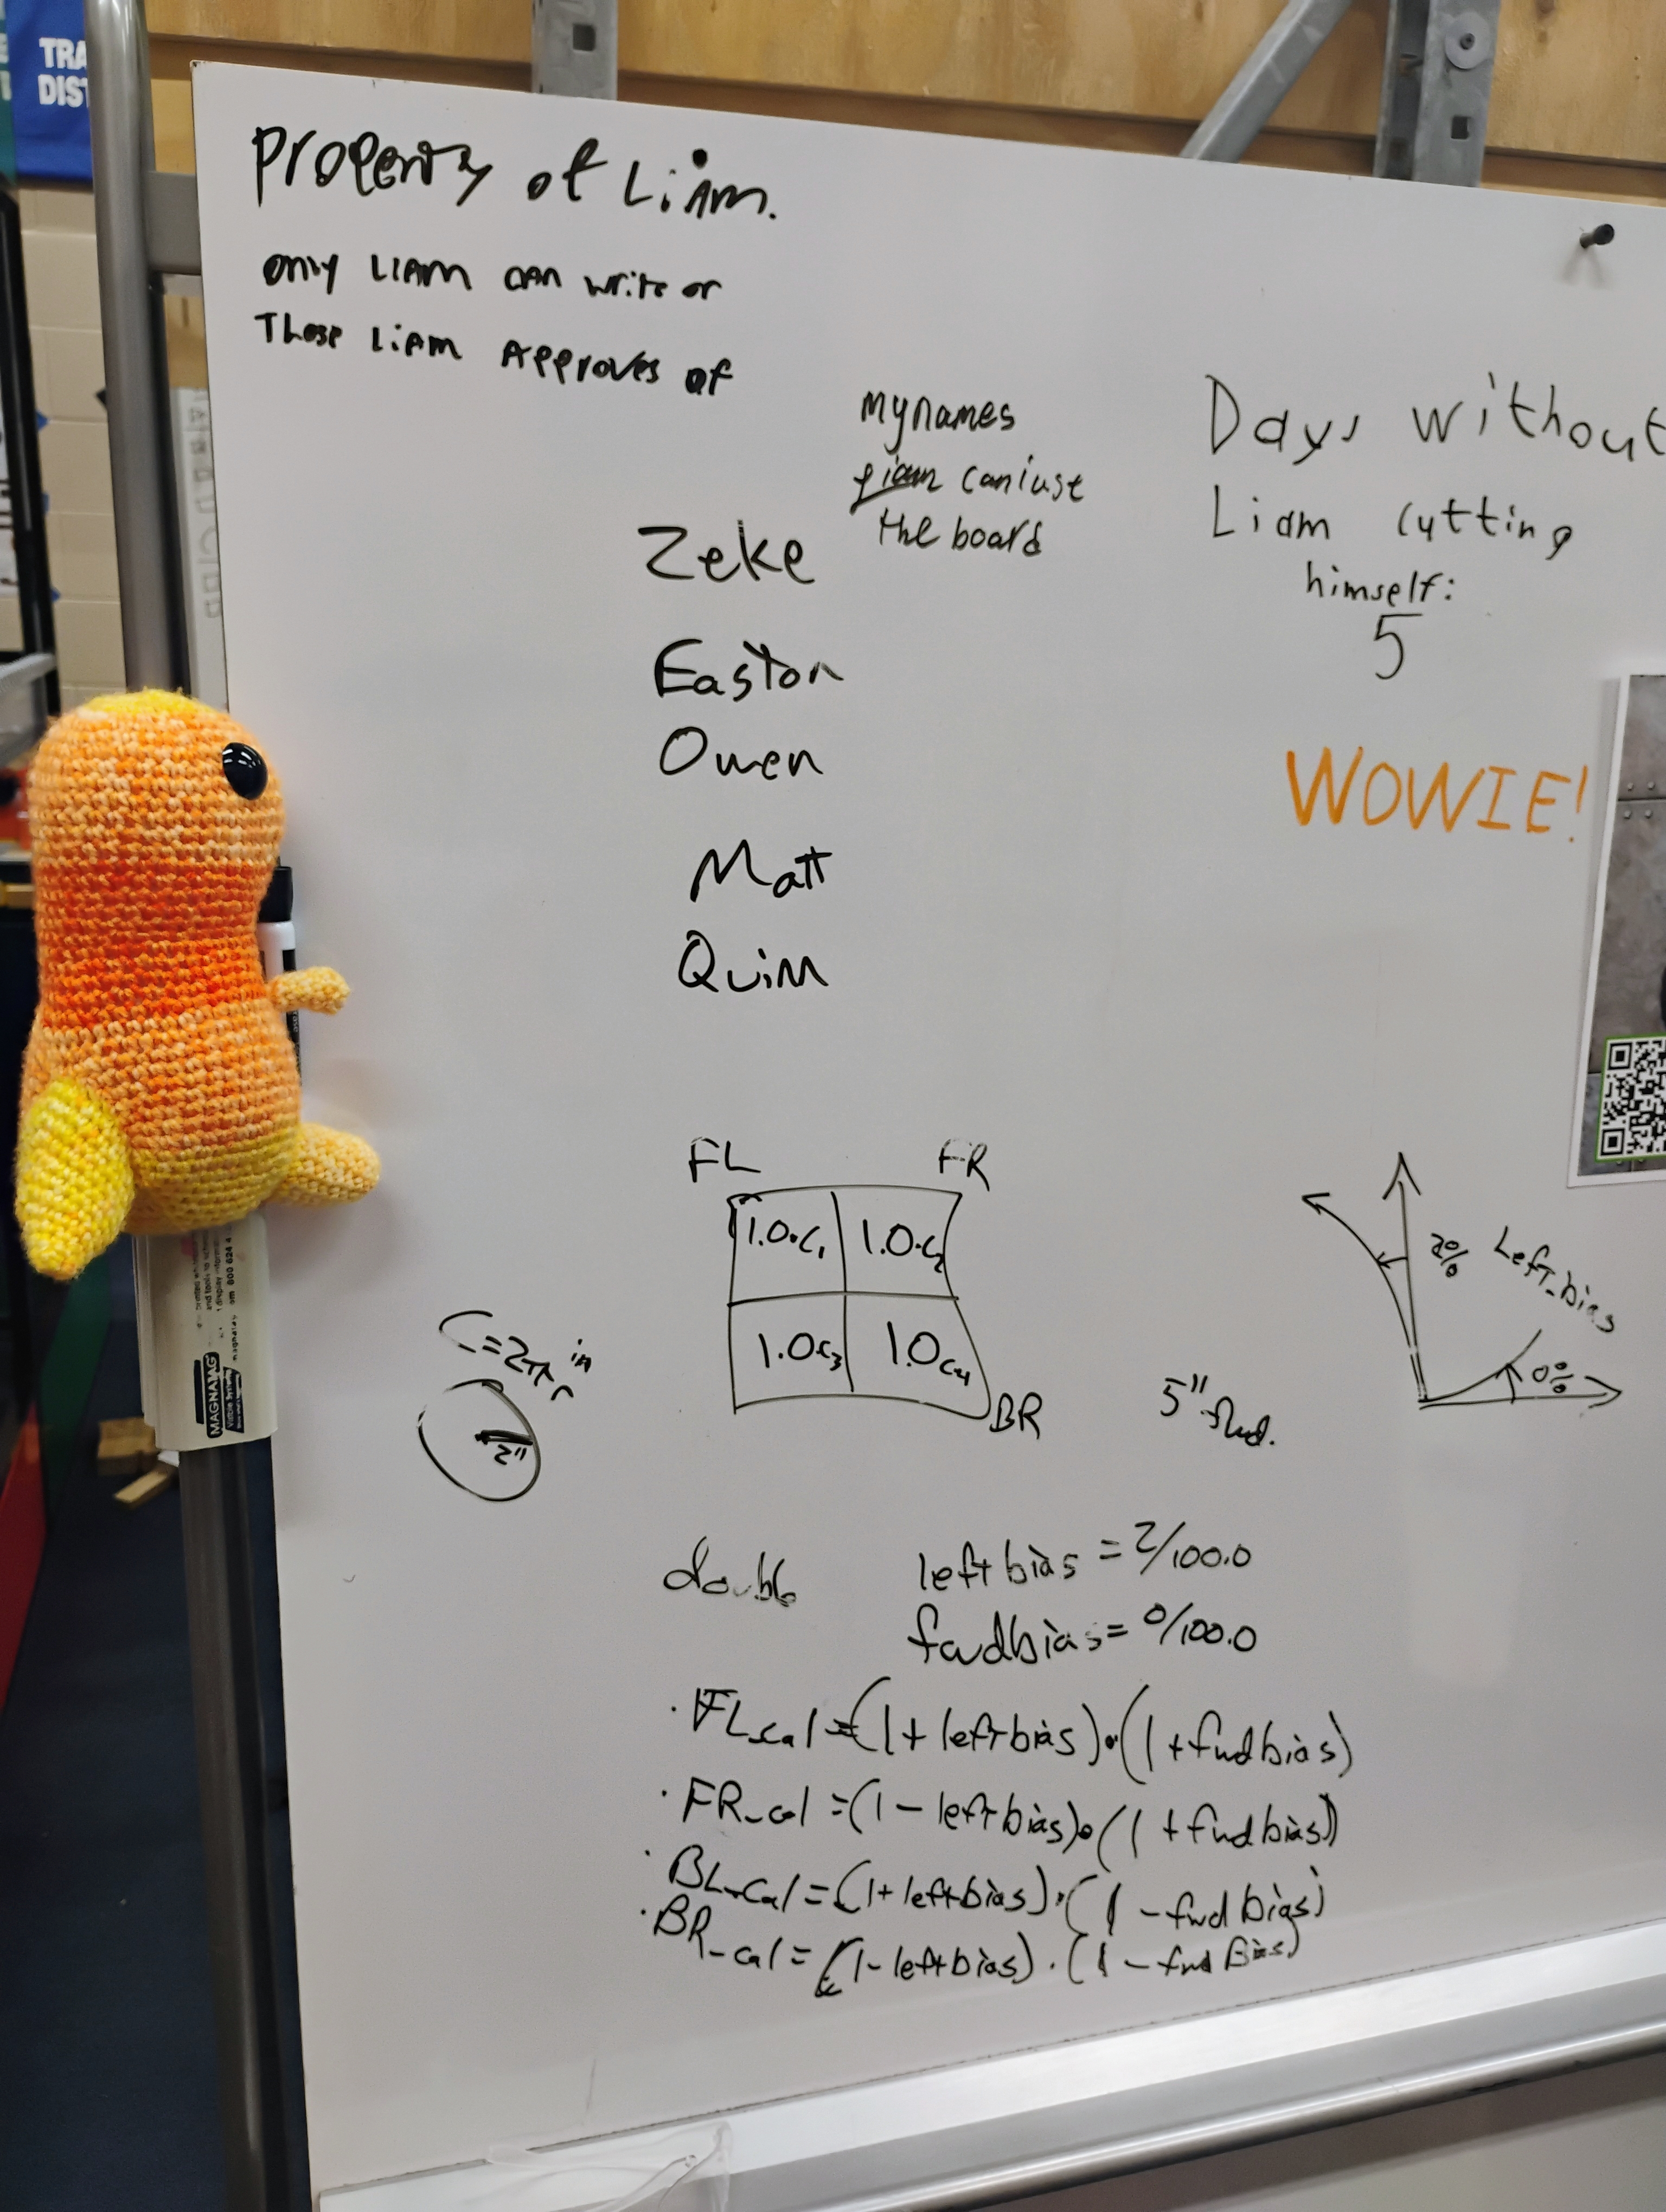 TRA
DIS
Property of Liam.
only Liam can write or
Those Liam Approves of
my names
can i use
the board
Days without
Liam cutting
himself:
5
Zeke
Easton
Owen
Matt
Quinn
WOWIE!
FL FR
1.0·C1 1.0·C2
1.0C3 1.0C4
BR
C=2πr in
2"
5"
2%
Left_bias
0%
double leftbias = 2/100.0
fwdbias = 0/100.0
·FL_cal=(1+leftbias)·(1+fwdbias)
·FR_cal=(1-leftbias)·(1+fwdbias)
·BL_cal=(1+leftbias)·(1-fwdbias)
·BR_cal=(1-leftbias)·(1-fwdBias)
MAGNATAG